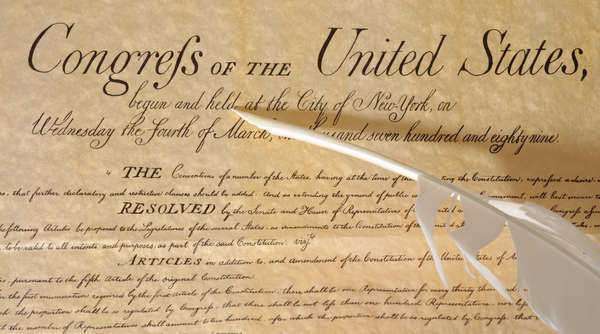 Congreſs OF THE United States,
begun and held at the City of New-York, on
Wednesday the Fourth of March, thousand seven hundred and eighty nine
THE Conventions of a number of the States, having at the time of the Constitution, expreſsed a desire
that further declaratory and restrictive clauses should be added: And as extending the ground of public will best
RESOLVED by the Senate and House of Representatives of the
following Articles be proposed to the Legislatures of the several States, as amendments to the Constitution of
to be valid to all intents and purposes, as part of the said Constitution. vizt
ARTICLES in addition to, and amendment of the Constitution of the United States of
pursuant to the fifth Article of the original Constitution.
first enumeration required by the first Article of the Constitution, there shall be one Representative for every thirty thousand,
the proportion shall be so regulated by Congreſs, that there shall be not leſs than one hundred Representatives, nor
number of Representatives shall amount to two hundred, after which the proportion shall be so regulated by Congreſs, that